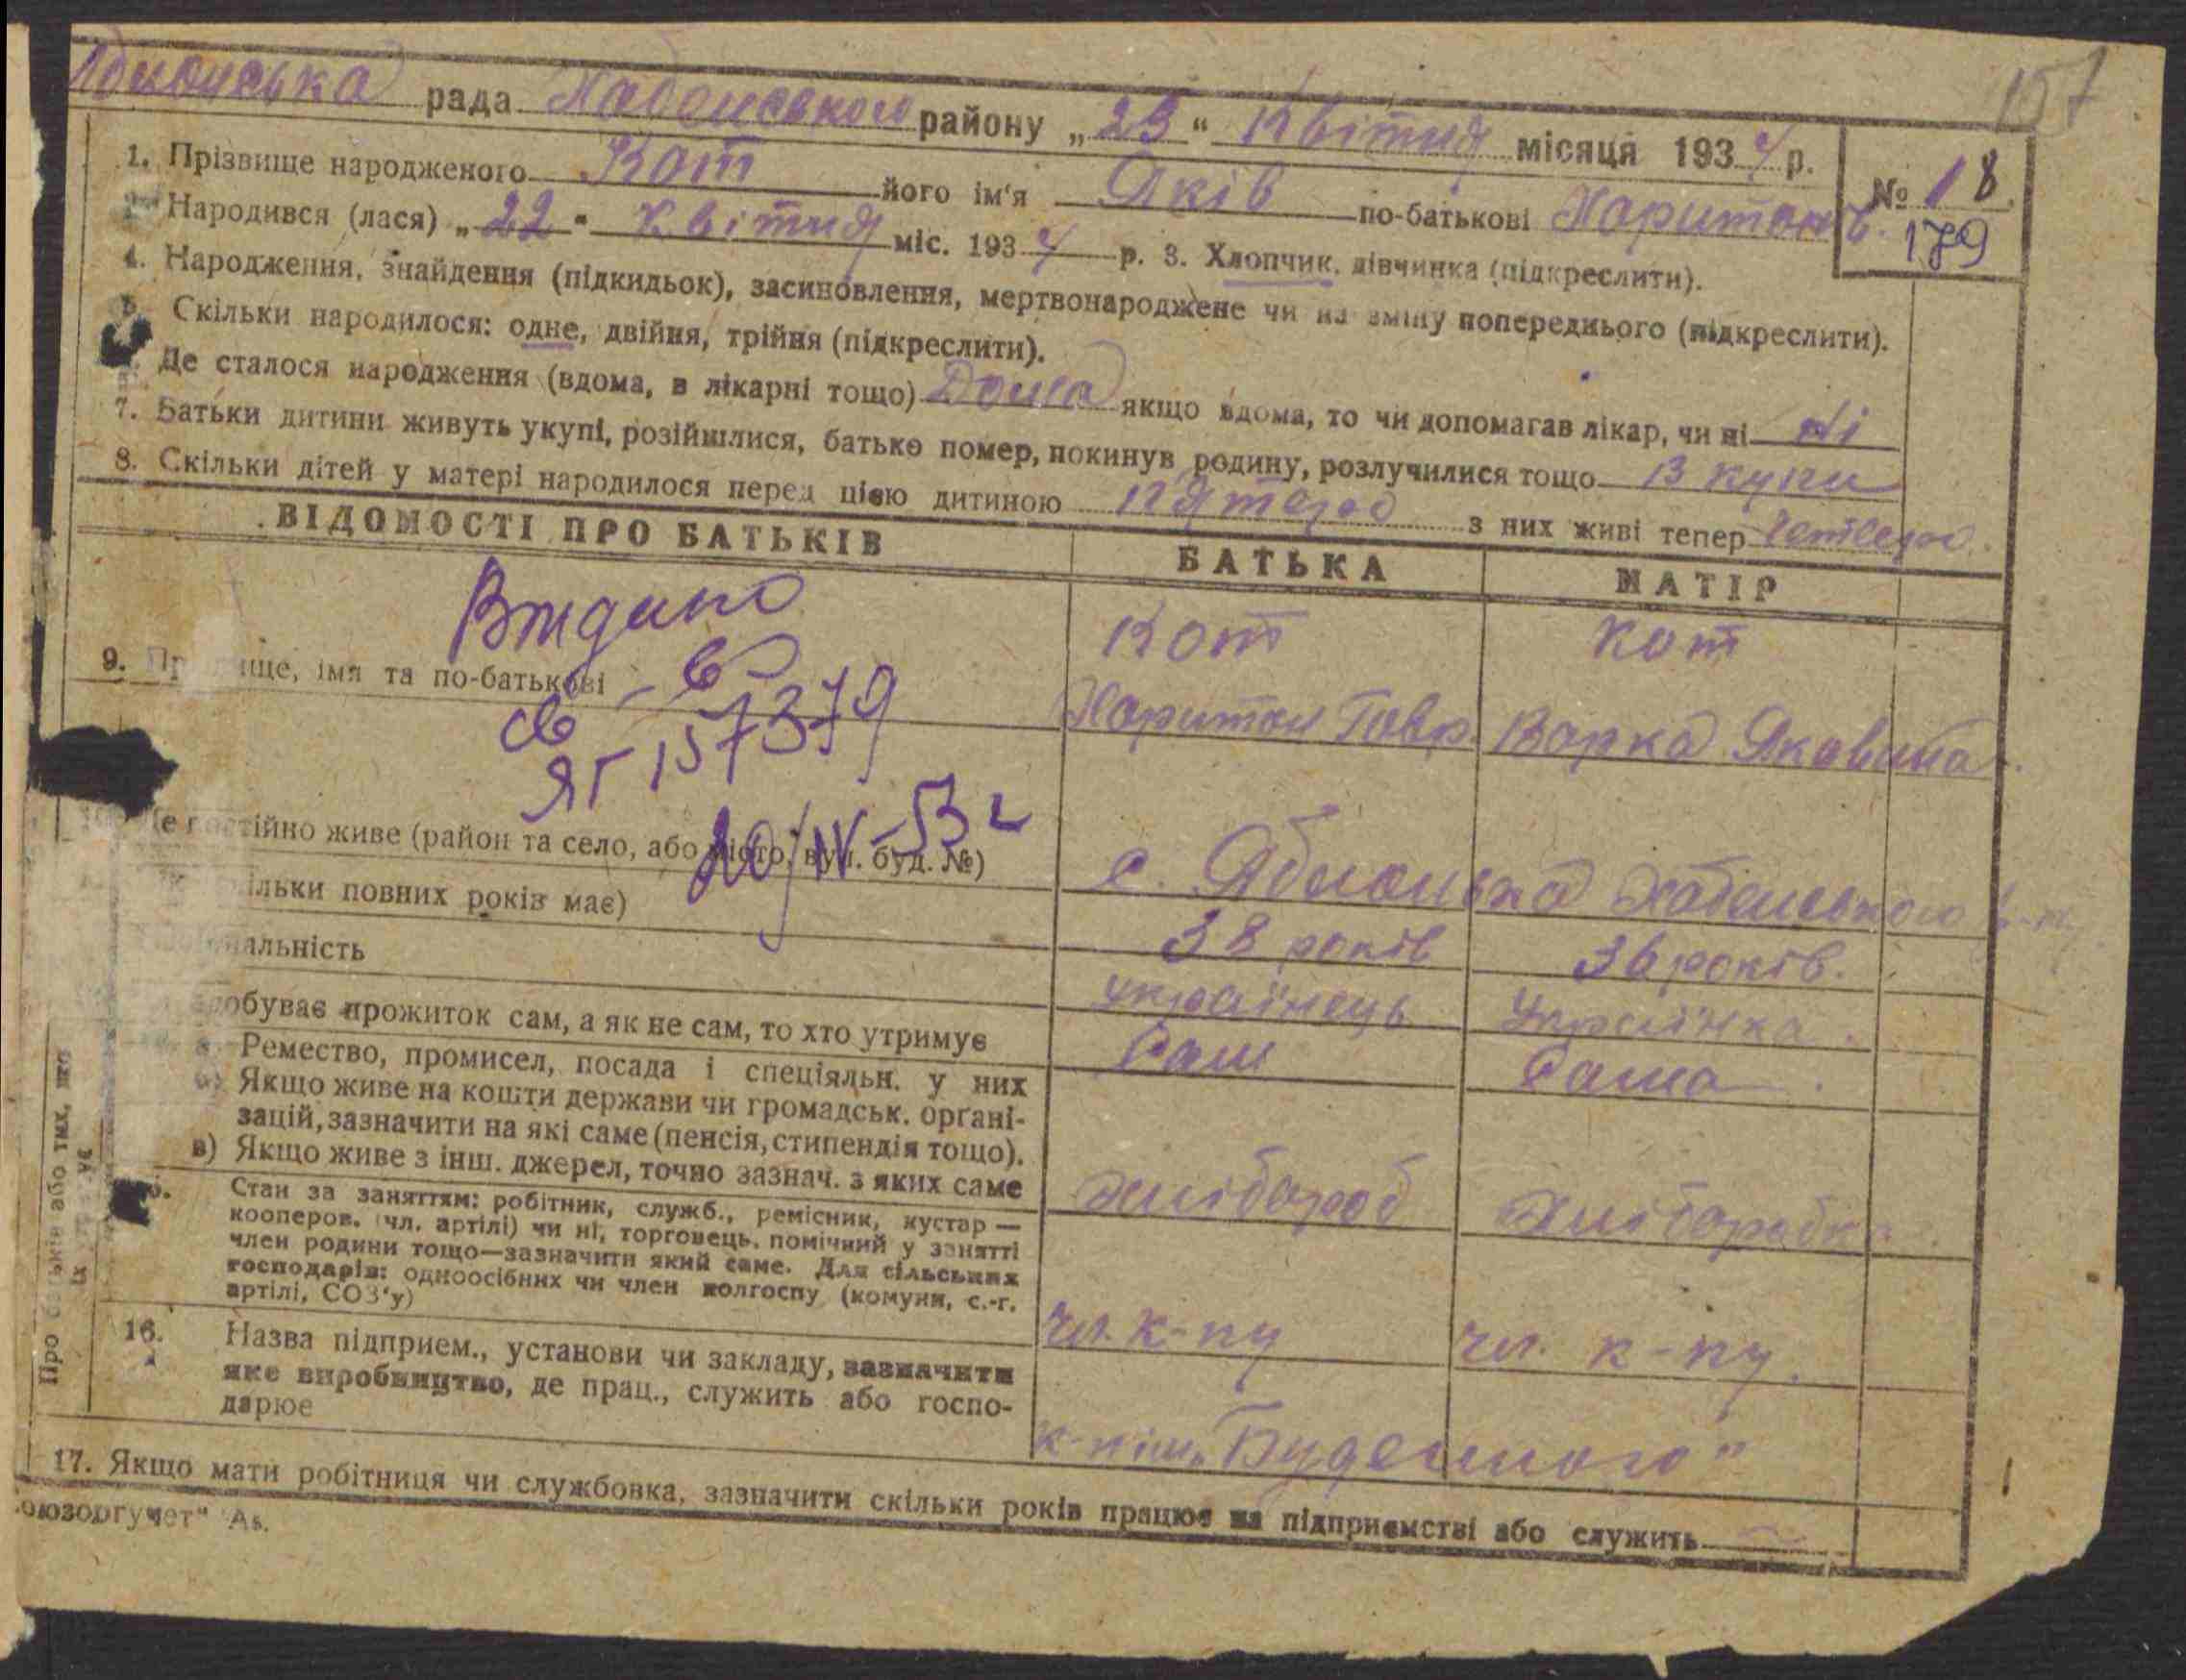 157
Яблонська рада Хабенського району „23“ Квітня місяця 1934 р.
№ 18
179
1. Прізвище народженого Кот його ім'я Яків по-батькові Харитонів.
2. Народився (лася) „22" Квітня міс. 1934 р. 3. Хлопчик, дівчинка (підкреслити).
4. Народження, знайдення (підкидьок), засиновлення, мертвонароджене чи на зміну попереднього (підкреслити).
5. Скільки народилося: одне, двійня, трійня (підкреслити).
Де сталося народження (вдома, в лікарні тощо) Дома якщо вдома, то чи допомагав лікар, чи ні Ні
7. Батьки дитини живуть укупі, розійшлися, батько помер, покинув родину, розлучилися тощо В купи
8. Скільки дітей у матері народилося перед цією дитиною Пятеро з них живі тепер Четверо
ВІДОМОСТІ ПРО БАТЬКІВ
БАТЬКА
МАТІР
9. Прізвище, імя та по-батькові
Кот
Харитон Гавр.
Кот
Варка Яковина.
св-во
ЯГ 157379
20/IV-53 г
Де постійно живе (район та село, або місто, вул. буд. №)
с. Яблонька Хабенського р-ну
Скільки повних років має)
38 років
36 років.
Національність
Українець
Українка.
Здобуває прожиток сам, а як не сам, то хто утримує
Сам
Сама.
а) Ремество, промисел, посада і спеціяльн. у них
б) Якщо живе на кошти держави чи громадськ. орґані-
зацій, зазначити на які саме (пенсія, стипендія тощо).
в) Якщо живе з інш. джерел, точно зазнач. з яких саме
Хлібороб
Хліборобка.
Стан за заняттям: робітник, служб., ремісник, кустар —
кооперов. (чл. артілі) чи ні, торговець, помічний у занятті
член родини тощо—зазначити який саме. Для сільських
господарів: одноосібник чи член колгоспу (комуни, с.-г.
артілі, СОЗ'у)
чл. к-пу
чл. к-пу.
16. Назва підприєм., установи чи закладу, зазначити
яке виробництво, де прац., служить або госпо-
дарює
к-п ім. „Буденного"
17. Якщо мати робітниця чи службовка, зазначити скільки років працює на підприємстві або служить
Про батьків або тих, що
їх
оюзоргучет"